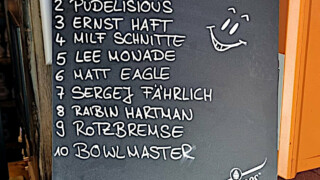 2 PUDELISIOUS
3 ERNST HAFT
4 MILF SCHNITTE
5 LEE MONADE
6 MATT EAGLE
7 SERGEJ FÄHRLICH
8 RAIBIN HARTMAN
9 ROTZBREMSE
10 BOWLMASTER